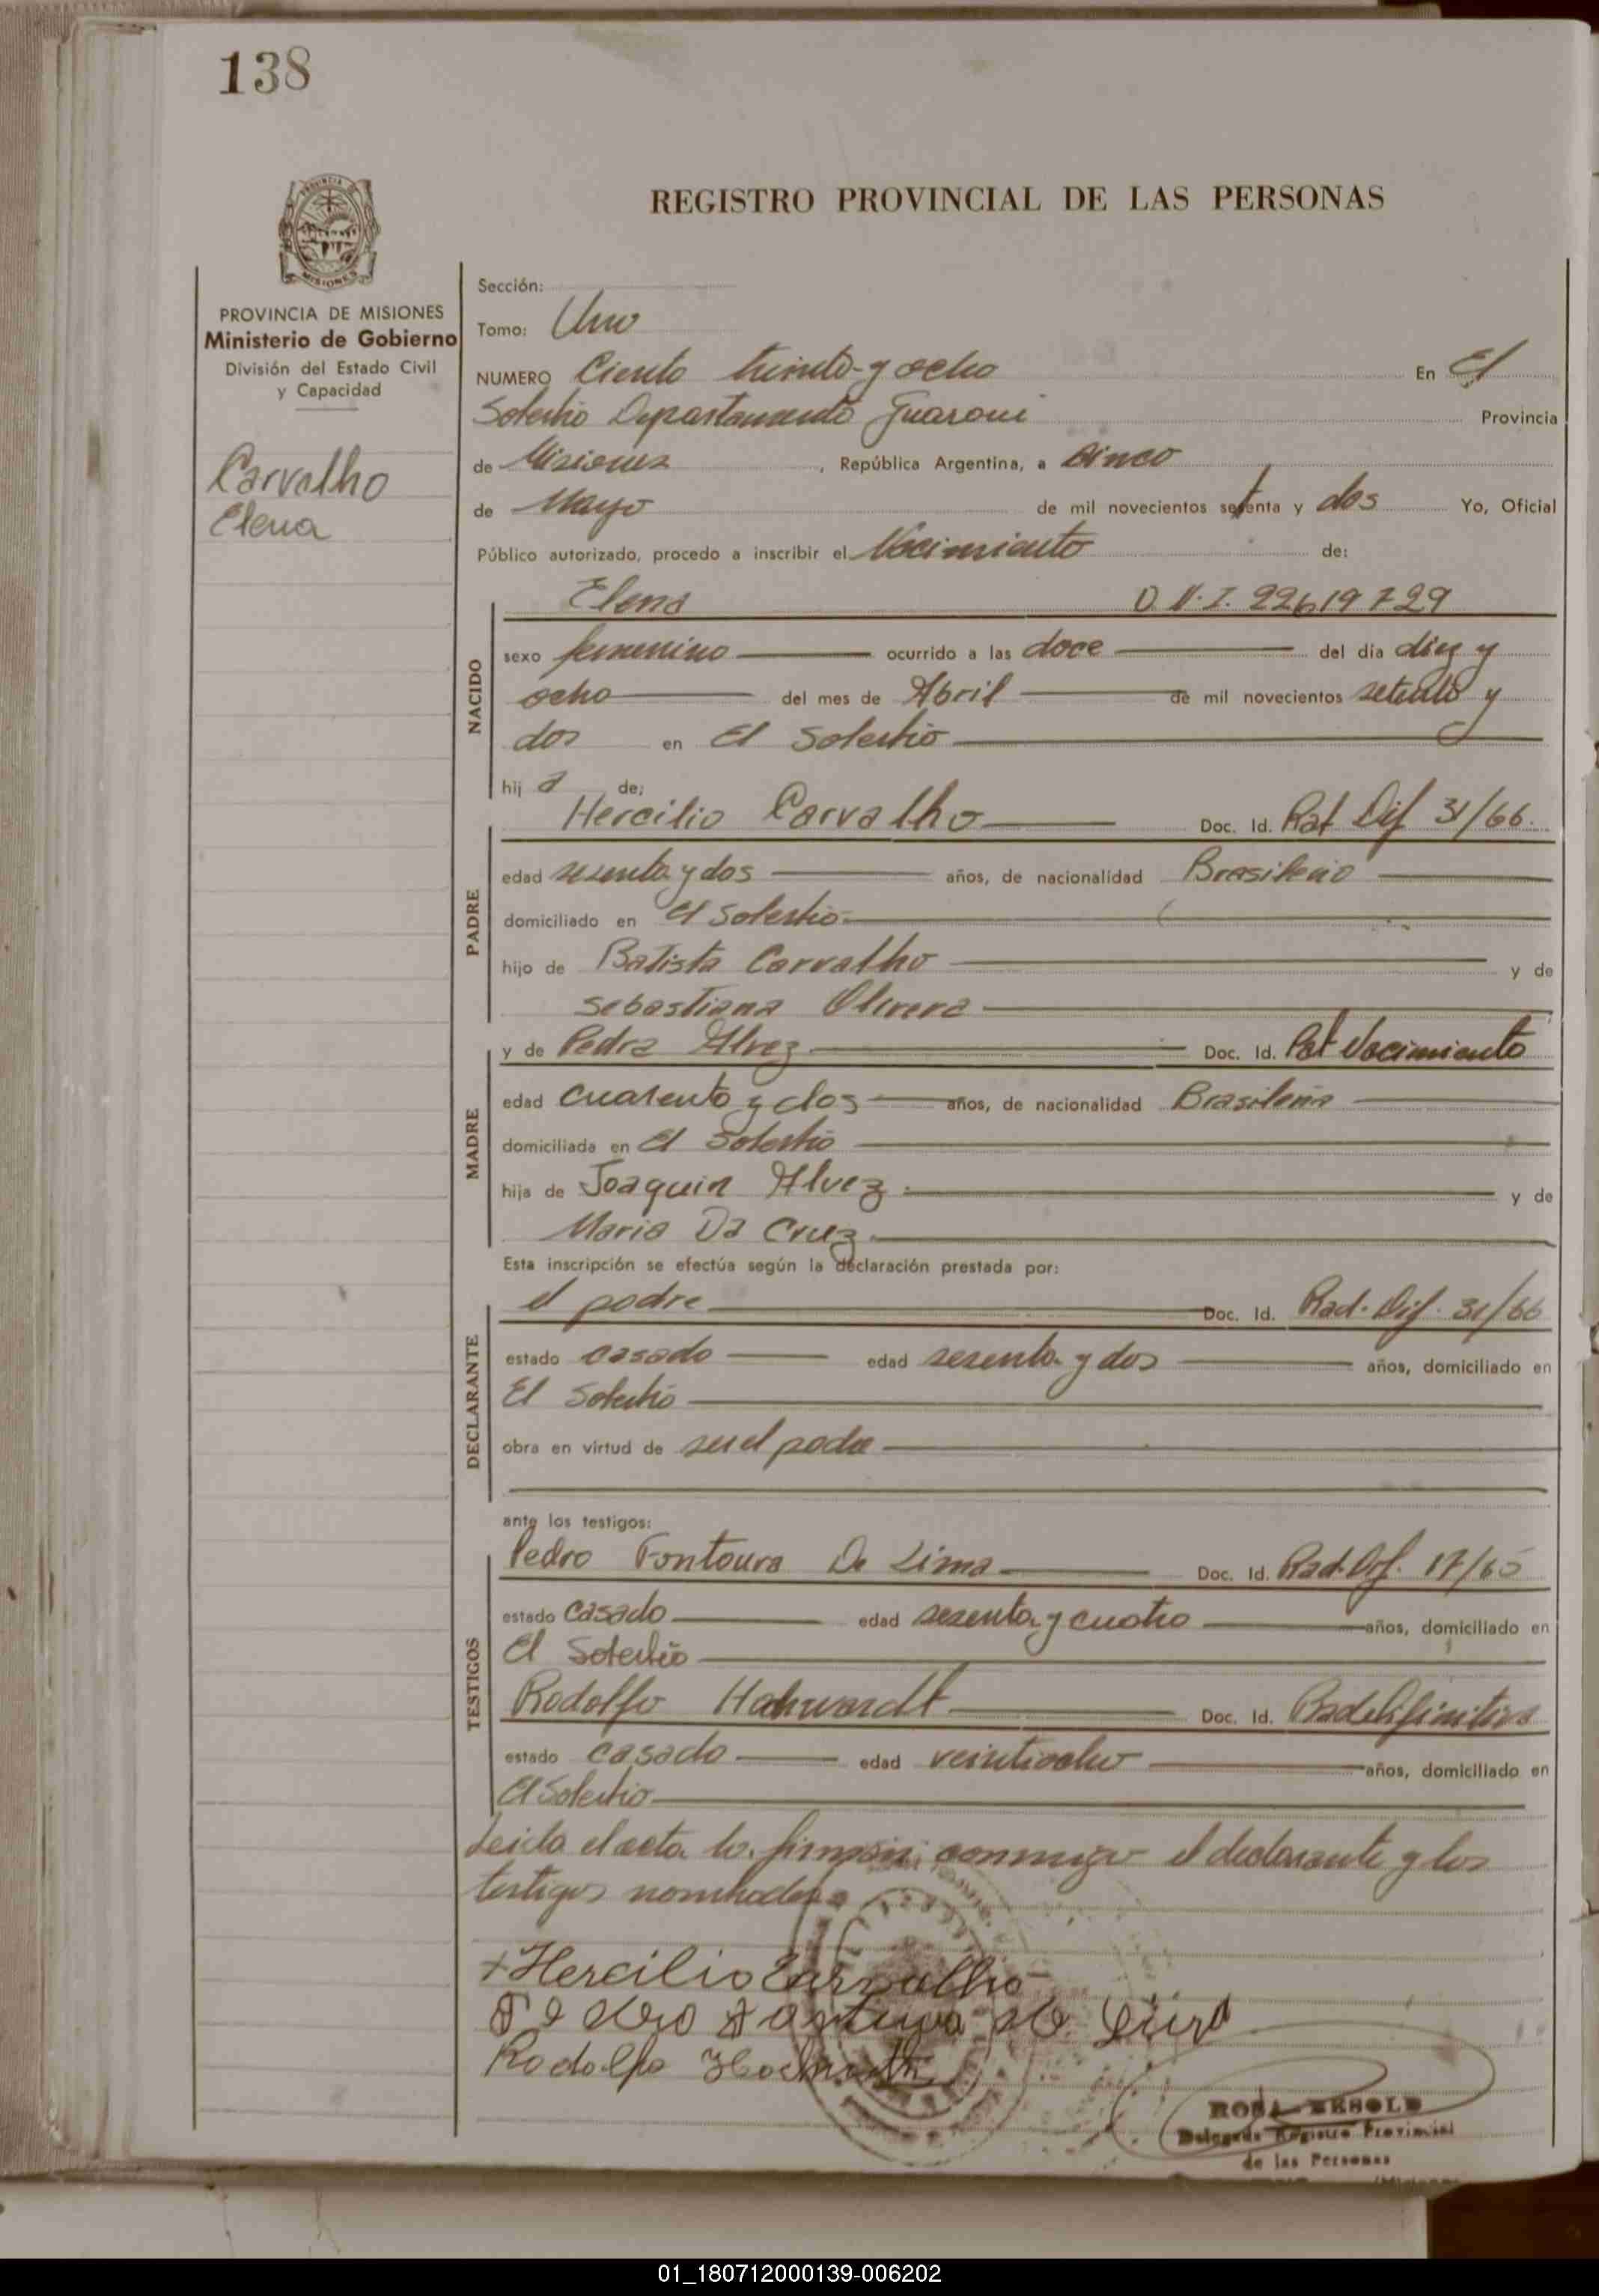 138
REGISTRO PROVINCIAL DE LAS PERSONAS
PROVINCIA DE MISIONES
Ministerio de Gobierno
División del Estado Civil
y Capacidad
Carvalho
Elena
Sección:
Tomo: Uno
NUMERO Ciento treinta y ocho En El
Soberbio Departamento Guaraní Provincia
de Misiones, República Argentina, a cinco
de Mayo de mil novecientos setenta y dos Yo, Oficial
Público autorizado, procedo a inscribir el Nacimiento de:
Elena D.N.I. 22619729
NACIDO
sexo femenino ocurrido a las doce del día diez y
ocho del mes de Abril de mil novecientos setenta y
dos en El Soberbio
hija de:
PADRE
Hercilio Carvalho Doc. Id. Rad Dif 31/66.
edad sesenta y dos años, de nacionalidad Brasileño
domiciliado en El Soberbio
hijo de Batista Carvalho y de
Sebastiana Olivera
MADRE
y de Pedra Alvez Doc. Id. Nacimiento
edad cuarenta y dos años, de nacionalidad Brasileña
domiciliada en El Soberbio
hija de Joaquin Alvez y de
Maria Da Cruz
Esta inscripción se efectúa según la declaración prestada por:
DECLARANTE
el padre Doc. Id. Rad. Dif. 31/66
estado casado edad sesenta y dos años, domiciliado en
El Soberbio
obra en virtud de ser el padre
ante los testigos:
TESTIGOS
Pedro Fontoura De Lima Doc. Id. Rad. Dif. 17/65
estado casado edad sesenta y cuatro años, domiciliado en
El Soberbio
Rodolfo Doc. Id.
estado casado edad veintiocho años, domiciliado en
El Soberbio
Leida el acta la firman conmigo el declarante y los
testigos nombrados
Hercilio Carvalho
Pedro Fontoura de Lima
Rodolfo
ROSA
Delegada Registro Provincial
de las Personas
01_180712000139-006202